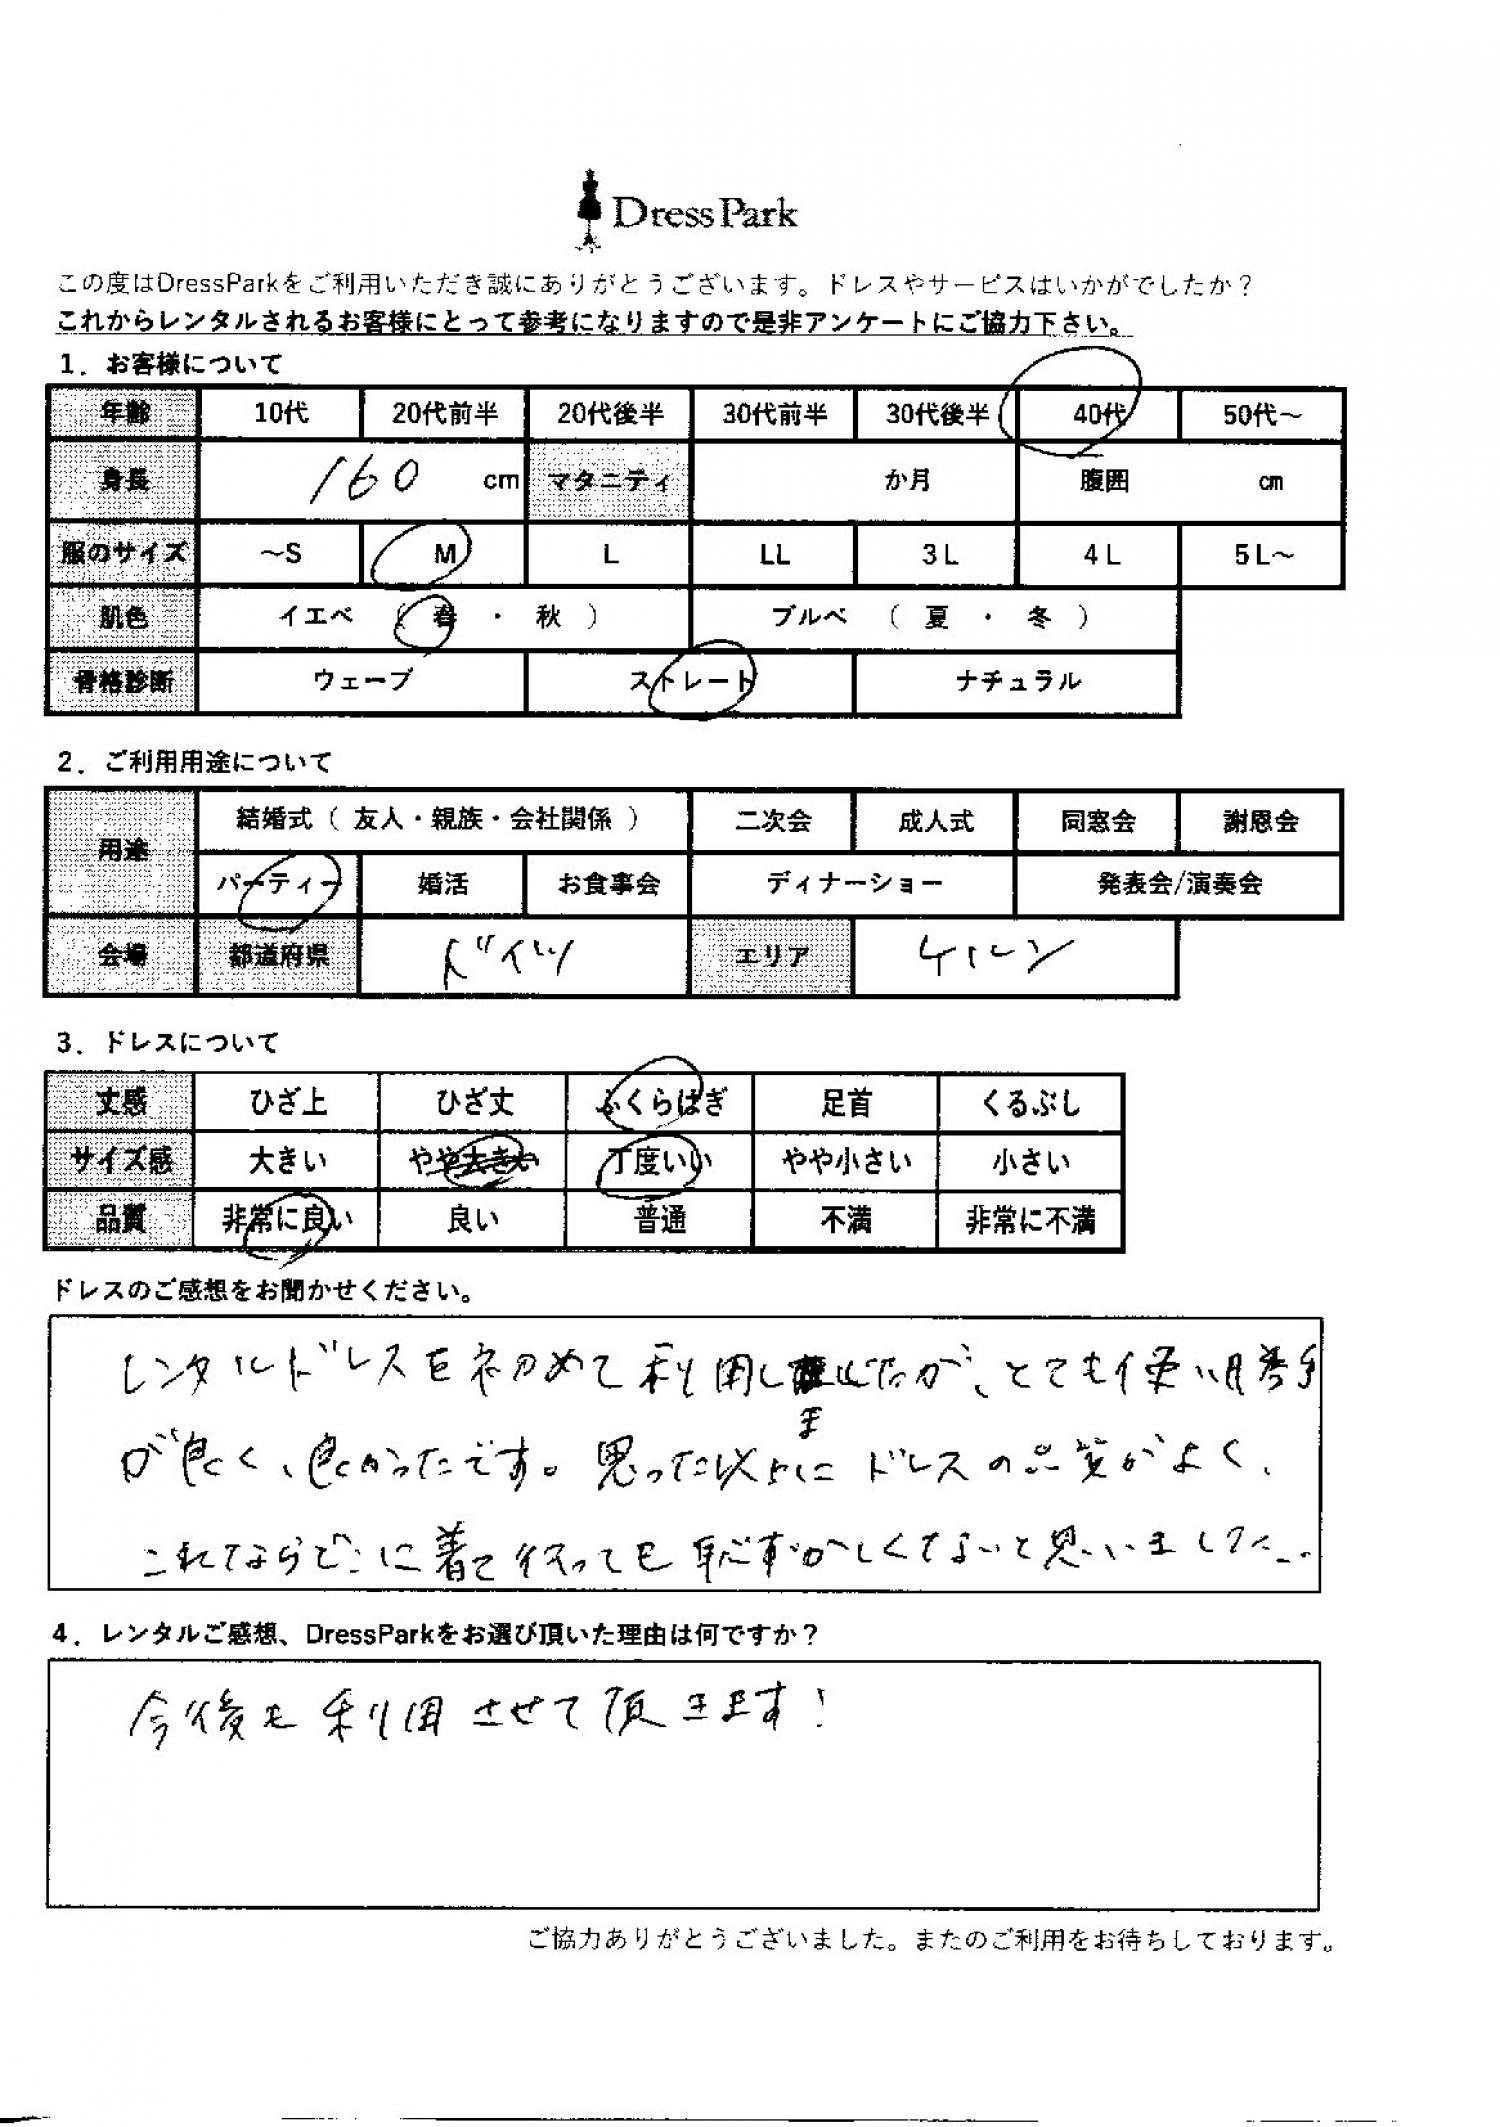 DressPark
この度はDressParkをご利用いただき誠にありがとうございます。ドレスやサービスはいかがでしたか？
これからレンタルされるお客様にとって参考になりますので是非アンケートにご協力下さい。
1．お客様について
年齢 10代 20代前半 20代後半 30代前半 30代後半 40代 50代～
身長 160 cm マタニティ か月 腹囲 cm
服のサイズ ～S M L LL 3L 4L 5L～
肌色 イエベ （ 春 ・ 秋 ） ブルベ （ 夏 ・ 冬 ）
骨格診断 ウェーブ ストレート ナチュラル
2．ご利用用途について
用途 結婚式（ 友人・親族・会社関係 ） 二次会 成人式 同窓会 謝恩会
パーティー 婚活 お食事会 ディナーショー 発表会/演奏会
会場 都道府県 ドイツ エリア ケルン
3．ドレスについて
丈感 ひざ上 ひざ丈 ふくらはぎ 足首 くるぶし
サイズ感 大きい やや大きい 丁度いい やや小さい 小さい
品質 非常に良い 良い 普通 不満 非常に不満
ドレスのご感想をお聞かせください。
レンタルドレスを初めて利用しましたが、とても使い勝手
が良く、良かったです。思った以上にドレスの品質がよく、
これならどこに着て行っても恥ずかしくないと思いました。
4．レンタルご感想、DressParkをお選び頂いた理由は何ですか？
今後も利用させて頂きます！
ご協力ありがとうございました。またのご利用をお待ちしております。